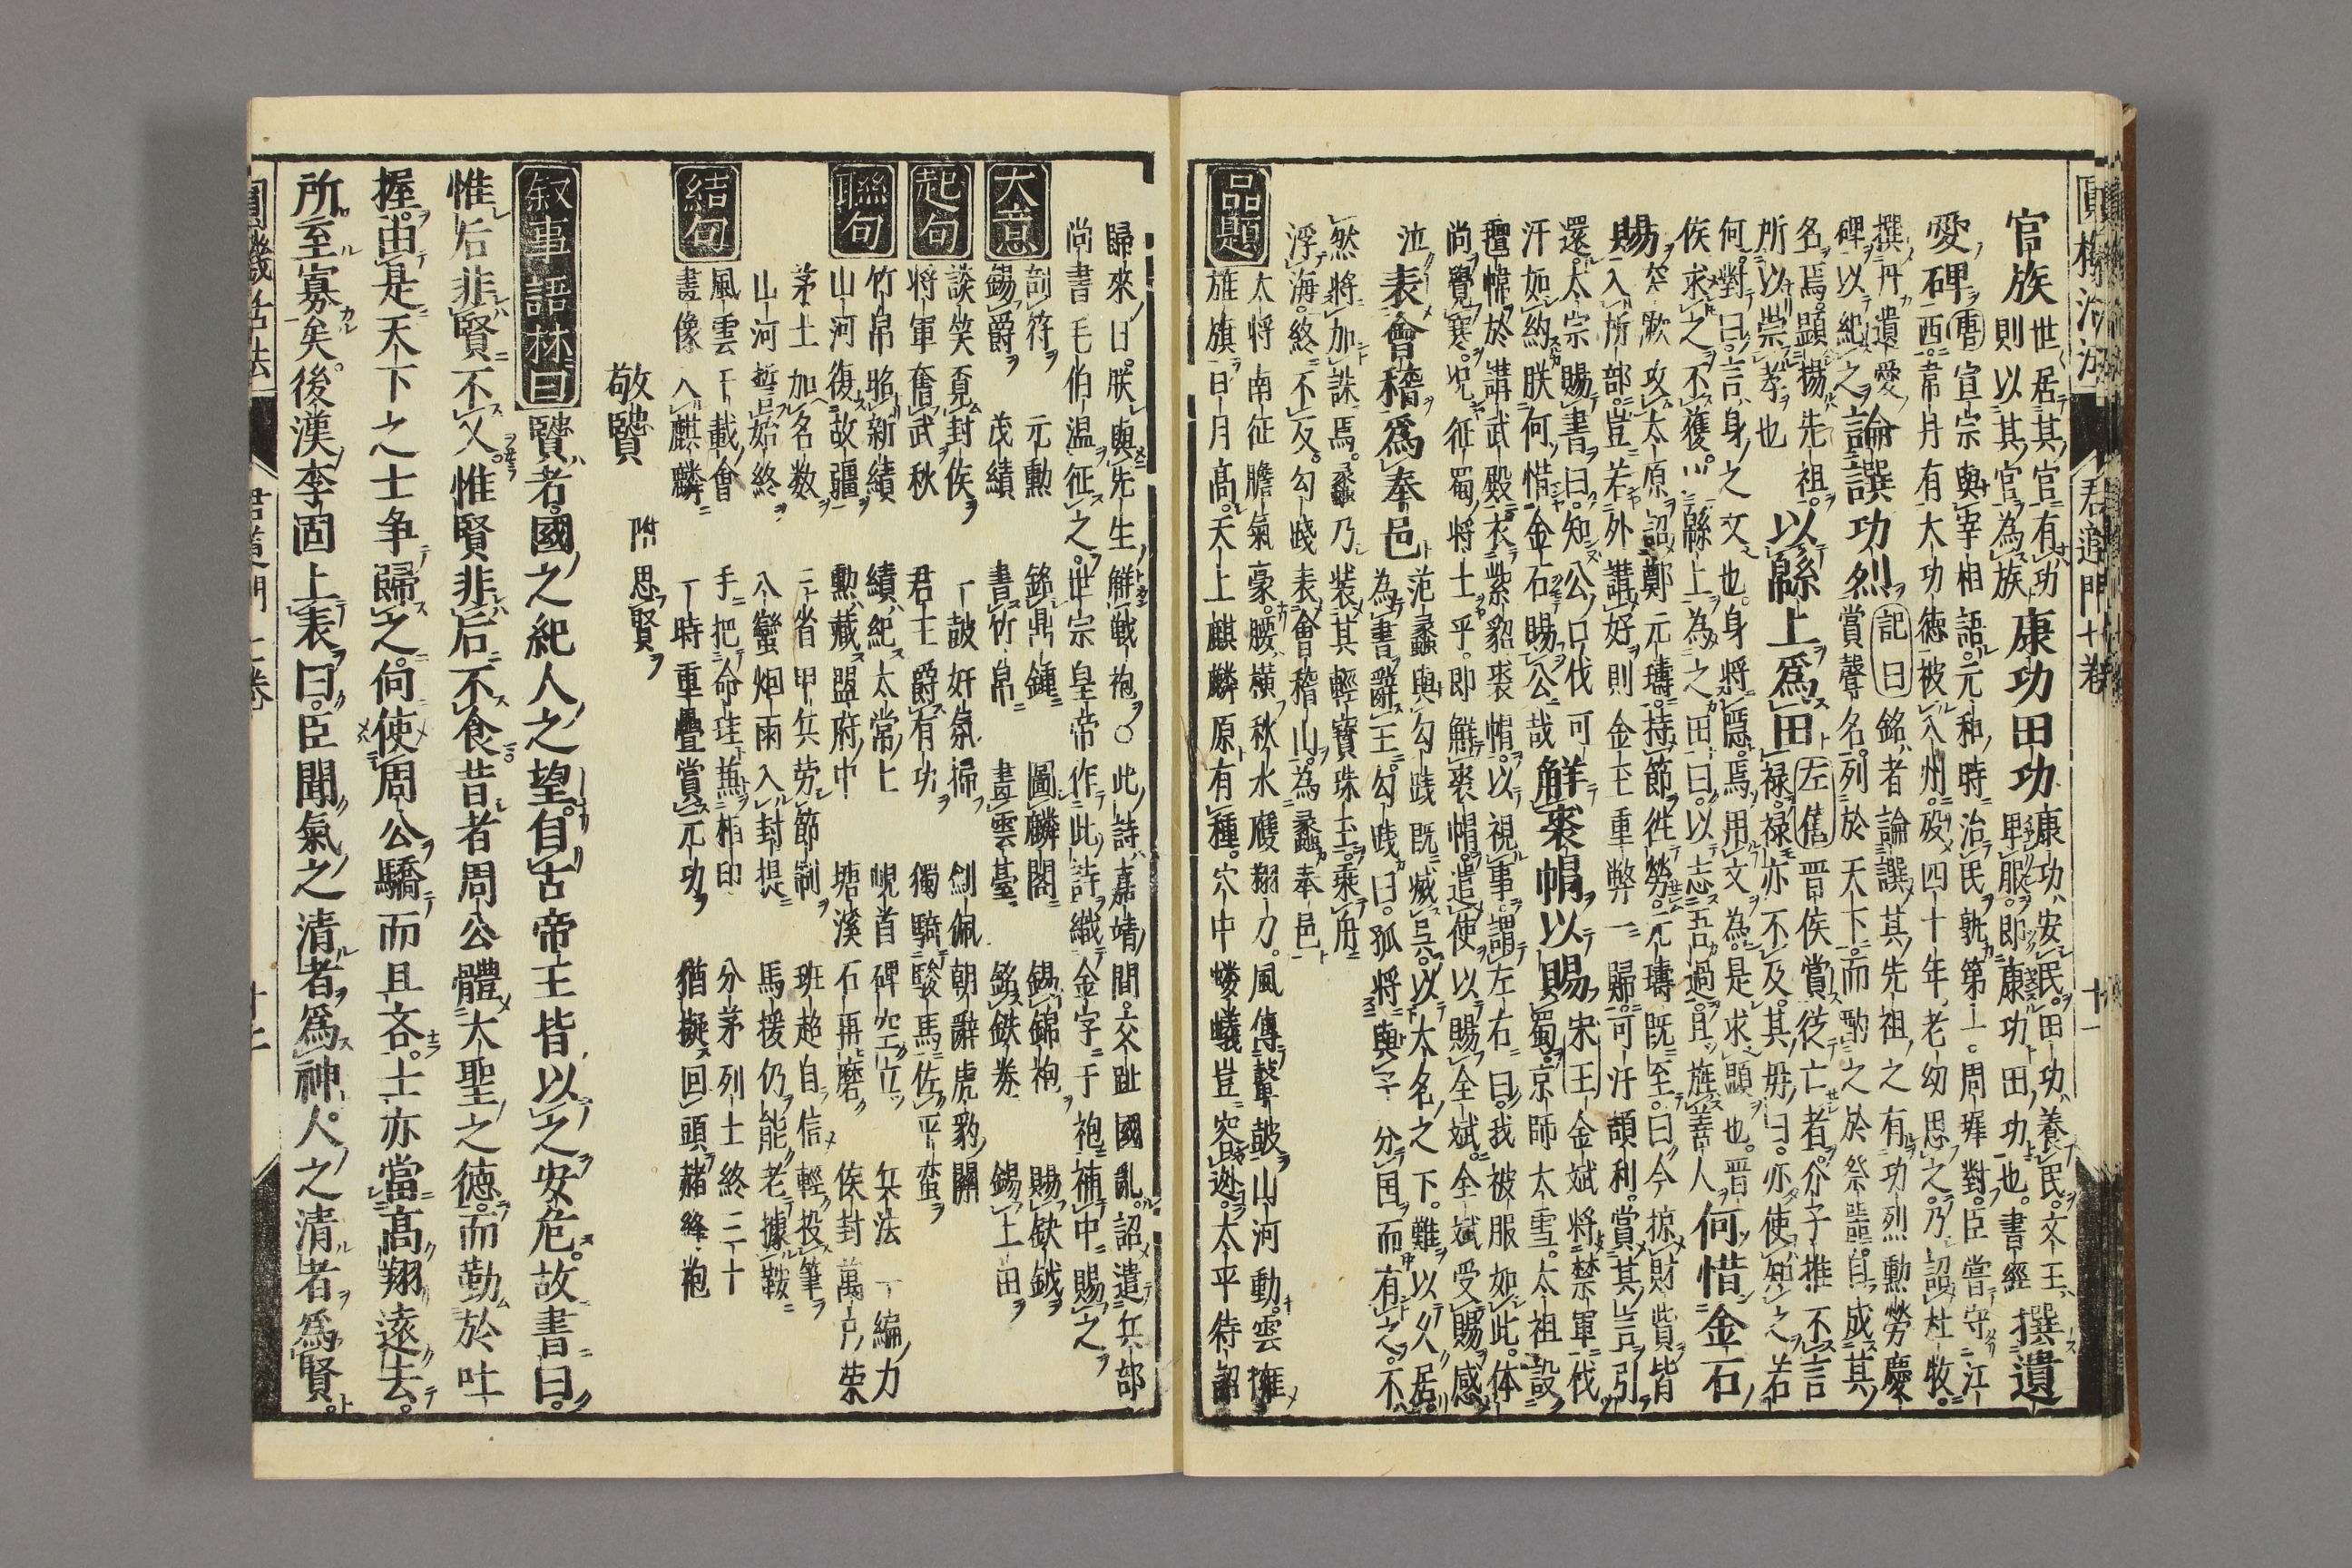 官族世居其官有功則以其官為族
康功田功康功安民田功養民文王卑服即康功田功也書經
撰遺愛碑唐宣宗與宰相語元和時治民孰第一周墀對臣嘗守江西韋丹有大功徳被八州歿四十年老幼思之乃詔杜牧撰丹遺愛碑以紀之
論譔功烈記曰銘者論譔其先祖之有功烈勲勞慶賞聲名列於天下而酌之於祭噐自成其名焉顕揚先祖所以崇孝也
以緜上爲田左僖晋侯賞従亡者介子推不言禄禄亦不及其母曰亦使知之若何對曰言身之文也身将隠焉用文為是求顕也晋侯求之不獲以緜上為之田曰以志吾過且旌善人
何惜金石賜突厥攻太原詔鄭元璹持節徃勞元璹既至曰今掠財貲皆入所部豈若外講好則金玉重弊一歸可汗頡利賞其言引還太宗賜書曰知公口伐可汗如約朕何惜金石賜公哉
觧裘帽以賜蜀宋王金斌将禁軍伐京師太雪太祖設氊帷於講武殿衣紫貂裘帽以視事謂左右曰我被服如此体尚覺寒况征蜀将士乎即觧裘帽遣使以賜全斌全斌受賜感泣
表會稽爲奉邑范蠡與勾踐既㓕吳以大名之下難以久居為書辭王勾踐曰孤将與子分国而有之不然將加誅焉蠡乃装其輕寳珠玉乗舟浮海終不反勾踐表會稽山為蠡奉邑
品題
太将南征膽氣豪腰横秋水鴈翎刀風傳鼙皷山河動雲擁旌旗日月髙天上麒麟原有種穴中螻蟻豈容逃太平待詔
歸來日朕與先生觧戦袍○此詩嘉靖間交趾國亂詔遣兵部
尚書毛伯温征之世宗皇帝作此詩織金字于袍補中賜之
大意
剖符 元勲 銘鼎鍾 圖麟閣 錫錦袍 賜鈌鉞
錫爵 茂績 書竹帛 畫雲臺 銘鉄券 錫土田
起句
談笑覔封侯 一皷奸氛掃 劍佩朝辭虎豹關
将軍奮武秋 君王爵有功 獨騎駿馬佐平蛮
聯句
竹帛昭新績 績紀太常上 峴首碑空立 兵法一編力
山河復故疆 勲藏盟府中 塘溪石再磨 侯封萬戸荣
茅土加名数 二省甲兵労節制 班超自信輕投筆
山河誓始終 八蠻烟雨入封提 馬援仍能老據鞍
結句
風雲千載會 手把命珪兼相印 分茅列士終二十
畫像入麒麟 一時重疊賞元功 猶擬回頭赭絳袍
敬賢 附思賢
叙事語林曰
賢者國之紀人之望自古帝王皆以之安危故書曰
惟后非賢不乂惟賢非后不食昔者周公體大聖之徳而勤於吐
握由是天下之士争歸之何使周公驕而且吝士亦當髙翔逺去
所至寡矣後漢李固上表曰臣聞氣之清者爲神人之清者爲賢